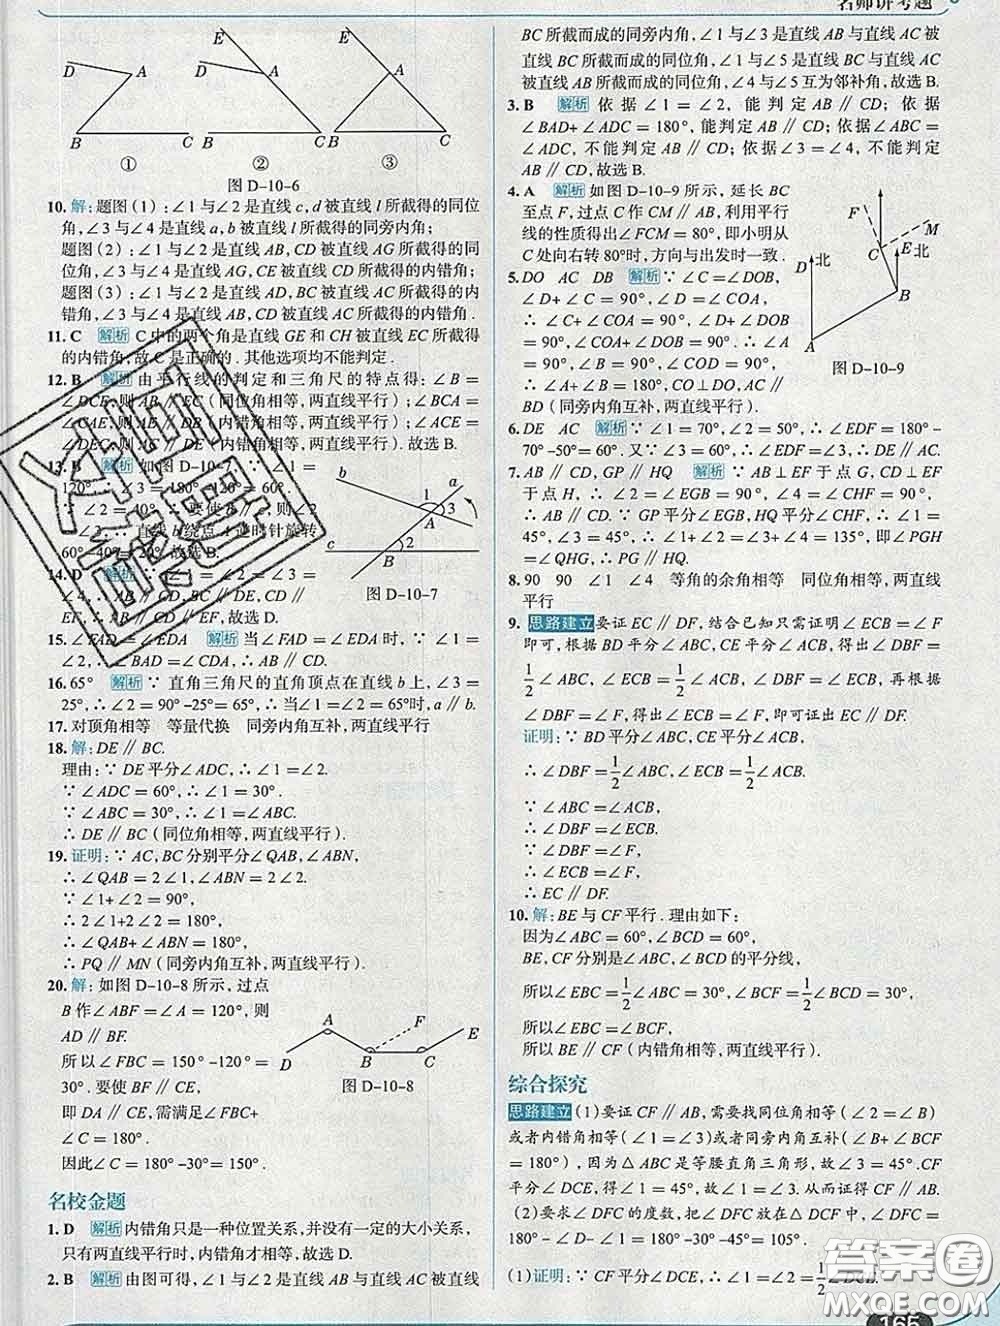 名师讲考题
E
D
A
B
C
①
E
D
A
B
C
②
E
D
A
B
C
③
图 D-10-6
10. 解:题图(1):∠1与∠2是直线c,d被直线l所截得的同位
角,∠3与∠4是直线a,b被直线l所截得的同旁内角;
题图(2):∠1与∠2是直线AB,CD被直线AG所截得的同
位角,∠3与∠4是直线AG,CE被直线CD所截得的内错角;
题图(3):∠1与∠2是直线AD,BC被直线AC所截得的内
错角,∠3与∠4是直线AB,CD被直线AC所截得的内错角.
11. C 解析 C中的两个角是直线GE和CH被直线EC所截得
的内错角,故C是正确的.其他选项均不能判定.
12. B 解析 由平行线的判定和三角尺的特点得:∠B=
∠DCE,则AB∥EC(同位角相等,两直线平行);∠BCA=
∠CAE,则AE∥DB(内错角相等,两直线平行);∠ACE=
∠DEC,则AC∥DE(内错角相等,两直线平行).故选B.
13. B 解析 如图D-10-7,∵∠1=
120°,∴∠3=180°-120°=60°.
∵∠2=40°,∴要使b∥ ,则∠2
∴直线b绕点A逆时针旋转
60°-40°=20°.故选B.
b
a
1
3
A
2
c
B
图 D-10-7
14. D 解析 ∵∠1=∠2=∠3=
∠4,∴AB∥CD,BC∥DE,CD∥
EF,∴AB∥CD∥EF,故选D.
15. ∠FAD=∠EDA 解析 当∠FAD=∠EDA时,∵∠1=
∠2,∴∠BAD=∠CDA,∴AB∥CD.
16. 65° 解析 ∵直角三角尺的直角顶点在直线b上,∠3=
25°,∴∠2=90°-25°=65°,∴当∠1=∠2=65°时,a∥b.
17. 对顶角相等 等量代换 同旁内角互补,两直线平行
18. 解:DE∥BC.
理由:∵DE平分∠ADC,∴∠1=∠2.
∵∠ADC=60°,∴∠1=30°.
∵∠ABC=30°,∴∠1=∠ABC.
∴DE∥BC(同位角相等,两直线平行).
19. 证明:∵AC,BC分别平分∠QAB,∠ABN,
∴∠QAB=2∠1,∠ABN=2∠2.
∵∠1+∠2=90°,
∴2∠1+2∠2=180°,
∴∠QAB+∠ABN=180°,
∴PQ∥MN(同旁内角互补,两直线平行).
20. 解:如图D-10-8所示,过点
B作∠ABF=∠A=120°,则
AD∥BF.
所以∠FBC=150°-120°=
30°.要使BF∥CE,
即DA∥CE,需满足∠FBC+
∠C=180°.
因此∠C=180°-30°=150°.
D
A
B
F
C
E
图 D-10-8
名校金题
1. D 解析 内错角只是一种位置关系,并没有一定的大小关系,
只有两直线平行时,内错角才相等.故选D.
2. B 解析 由图可得,∠1与∠2是直线AB与直线AC被直线
BC所截而成的同旁内角,∠1与∠3是直线AB与直线AC被
直线BC所截而成的同位角,∠1与∠5是直线BC与直线AC
被直线AB所截而成的同位角,∠4与∠5互为邻补角,故选B.
3. B 解析 依据∠1=∠2,能判定AB∥CD;依据
∠BAD+∠ADC=180°,能判定AB∥CD;依据∠ABC=
∠ADC,不能判定AB∥CD;依据∠3=∠4,不能判定
AB∥CD,故选B.
4. A 解析 如图D-10-9所示,延长BC
至点F,过点C作CM∥AB,利用平行
线的性质得出∠FCM=80°,即小明从
C处向右转80°时,方向与出发时一致.
F
M
E
北
北
C
B
A
图 D-10-9
5. DO AC DB 解析 ∵∠C=∠DOB,
∠D+∠C=90°,∠D=∠COA,
∴∠C+∠COA=90°,
∠COA+∠DOB=90°,
∴∠A=90°,∠B=90°,∠COD=90°,
∴∠A+∠B=180°,CO⊥DO,AC∥
BD(同旁内角互补,两直线平行).
6. DE AC 解析 ∵∠1=70°,∠2=50°,∴∠EDF=180°-
70°-50°=60°.又∵∠3=60°,∴∠EDF=∠3,∴DE∥AC.
7. AB∥CD,GP∥HQ 解析 ∵AB⊥EF于点G,CD⊥EF
于点H,∴∠2=∠EGB=90°,∠4=∠CHF=90°,
∴AB∥CD.∵GP平分∠EGB,HQ平分∠CHF,∴∠1=
45°,∠3=45°,∴∠1+∠2=∠3+∠4=135°,即∠PGH
=∠QHG,∴PG∥HQ.
8. 90 90 ∠1 ∠4 等角的余角相等 同位角相等,两直线
平行
9. 思路建立 要证EC∥DF,结合已知只需证明∠ECB=∠F
即可,根据BD平分∠ABC,CE平分∠ACB,得出∠DBF=
1/2∠ABC,∠ECB=1/2∠ACB,∠DBF=∠ECB,再根据
∠DBF=∠F,得出∠ECB=∠F,即可证出EC∥DF.
证明:∵BD平分∠ABC,CE平分∠ACB,
∴∠DBF=1/2∠ABC,∠ECB=1/2∠ACB,
∵∠ABC=∠ACB,
∴∠DBF=∠ECB.
∵∠DBF=∠F,
∴∠ECB=∠F,
∴EC∥DF.
10. 解:BE与CF平行.理由如下:
因为∠ABC=60°,∠BCD=60°,
BE,CF分别是∠ABC,∠BCD的平分线,
所以∠EBC=1/2∠ABC=30°,∠BCF=1/2∠BCD=30°,
所以∠EBC=∠BCF,
所以BE∥CF(内错角相等,两直线平行).
综合探究
思路建立 (1)要证CF∥AB,需要找同位角相等(∠2=∠B)
或者内错角相等(∠1=∠3)或者同旁内角互补(∠B+∠BCF
=180°),因为△ABC是等腰直角三角形,故∠3=45°.CF
平分∠DCE,得∠1=45°,从而证得CF∥AB.
(2)要求∠DFC的度数,把∠DFC放在△DCF中,∠DFC=
180°-∠D-∠1=180°-30°-45°=105°.
(1)证明:∵CF平分∠DCE,∴∠1=∠2=1/2∠DCE.
答案圈
MXQE.COM
165